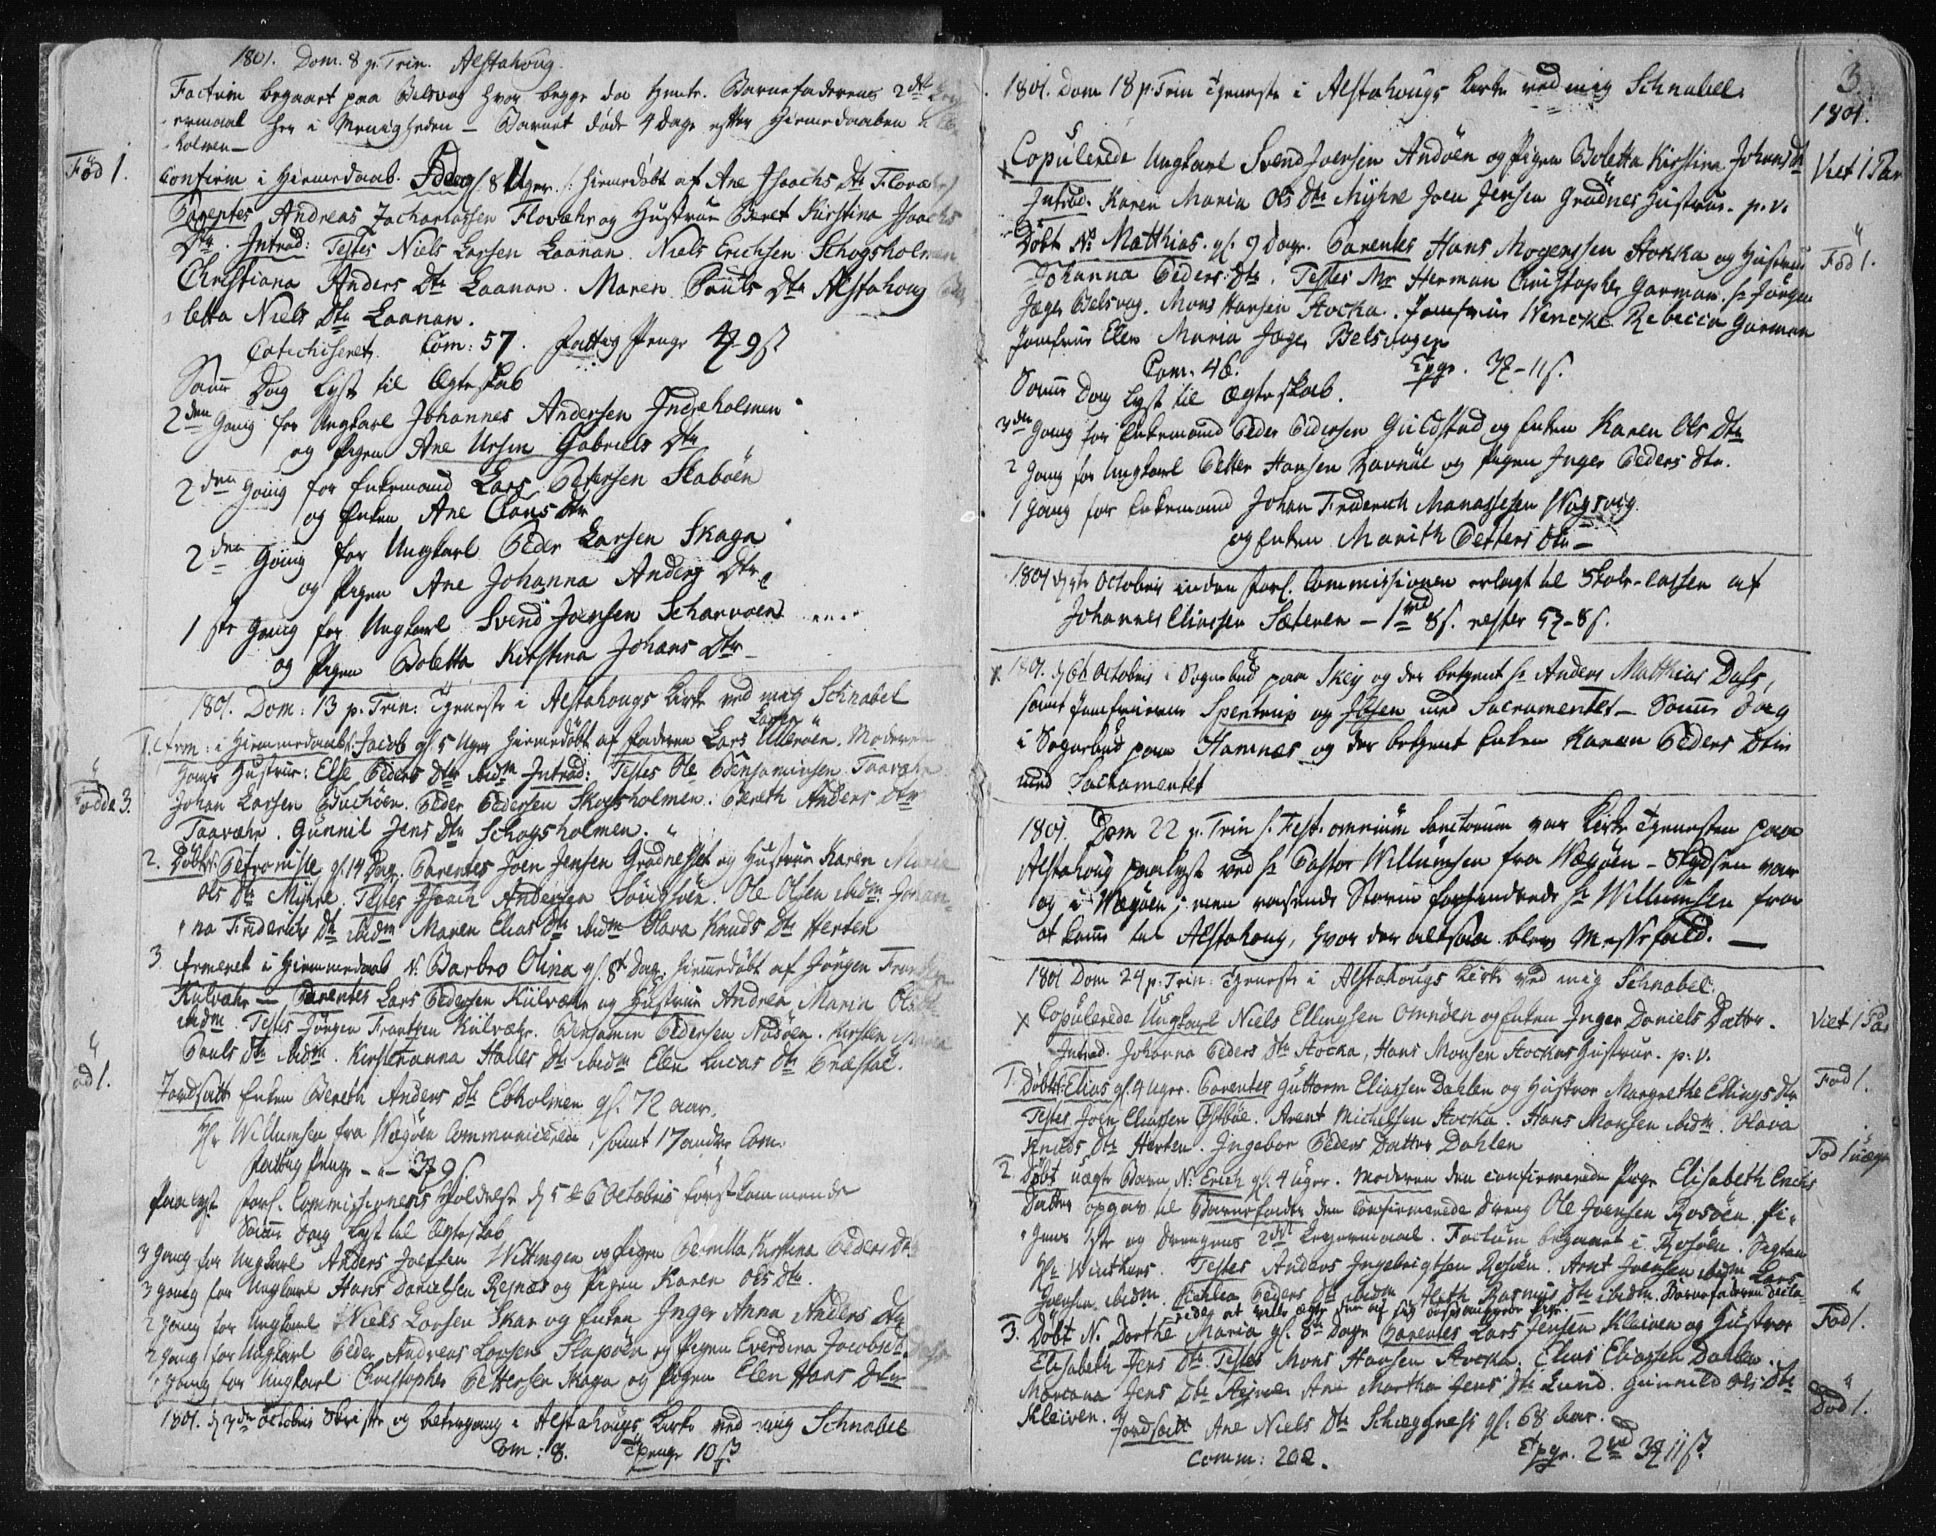 1801. Dom. 8 p. Trin. Alstahoug.
Factum begaaet paa Belsvog hvor begge da tiente. Barnefaderens 2det
ermaal her i Menigheden – Barnet døde 4 dage efter Hiemmedaaben
holmen –
Fød 1.
Confirm i Hiemmedaab. gl. 8 Uger. /: Hiemedøbt af Ane Isaachs Dtr Flovæhr
Parentes Andreas Zachariassen Flovæhr og Hustrue Beret Kirstina Isaachs
Dtr. Introd: Testes Niels Larsen Laanan. Niels Erichsen Schogsholmen
Christiana Anders Dtr Laanan. Maren Pouls Dtr Alstahoug
letta Niels Dtr Laanan.
Catechiseret. Com: 57. Fattig Penge 9 s
Samme Dag lyst til Ægteskab
2den Gang for Ungkarl Johannes Andersen Ingeholmen
og Pigen Ane Ursin Gabriels Dtr
2den Gang for Enkemand Lars Petersen Skaböen
og Enken Ane Clous Dtr
2den Gang for Ungkarl Peder Larsen Skaga
og Pigen Ane Johanna Anders Dtr
1ste Gang for Ungkarl Svend Joensen Scharvoen
og Pigen Boletta Kirstina Johans Dtr –
1801. Dom: 13 p. Trin: Tjeneste i Alstahougs Kirke ved mig Schnabel
Fødde 3.
1. Cfrm: i Hiemmedaab: Jacob gl. 5 Uger Hiemedøbt af Faderen Lars Larsen Ulleröen. Moderen
Hans Hustrue: Else Peders Dtr ibidm Introd: Testes Ole Benjaminsen Taavæhr
Johan Larsen Buchöen. Peder Pedersen Skogsholmen. Bereth Anders Dtr
Taavæhr. Gunnil Jens Dtr Schogsholmen.
2. Döbt: Petronille gl. 14 Dag. Parentes Joen Jensen Gradnesset og Hustrue Karen Maria
Ols Dtr Myhre. Testes Isaach Andersen Sörigsöen. Ole Olsen ibidm. Johan-
na Friderichs Dtr ibidm Maren Elias Dtr ibidm Olava Knuds Dtr Herten
3. Cfrmeret i Hiemmedaab N. Barbro Olina gl. 8te Dag: hiemedøbt af Jörgen Frantzen
Kulvæhr – Parentes Lars Pedersen Kulvæhr og Hustrue Andrea Maria Ols Dtr
ibidm. Testes Jörgen Frantzen Kulvæhr. Benjamin Pedersen Nödöen. Kirsten Maria
Pouls Dtr ibidm. Kirstenanna Halles Dtr ibidm Elen Lucas Dtr Præstöe.
öd 1.
Jordsatt Enken Bereth Anders Dtr Ebholmen gl. 72 aar.
Hr Willumsen fra Vægöen Communicerede, samt 17 andre Com.
Fattig Penge – „ – 9 s.
Paalyst Forl. Commissionens holdelse d 5 & 6 Octobris förstkommende
Samme Dag lyst til Ægteskab
3 Gang for Ungkarl Anders Joensen Wettingen og Pigen Pernilla Kirstina Peders Dtr
3 Gang for Ungkarl Hans Danielsen Resnæs og Pigen Karen Ols Dtr.
2 Gang for Ungkarl Niels Larsen Skar og Enken Inger Anna Anders Dtr
2 Gang for Ungkarl Peder Andreas Larsen Slapöen og Pigen Everdina Jacobs
1 Gang for Ungkarl Christopher Pettersen Skaga og Pigen Elen Hans Dtr
1801. d 3die Octobris Skrifte og betragtng i Alstahougs Kirke ved mig Schnabel
Com: 8. Tpenge 10 s
3
1801.
1801. Dom 18 p. Trin Tjeneste i Alstahougs Kirke ved mig Schnabel.
Viet 1 Par
Copulerede Ungkarl Svend Joensen Andöen og Pigen Boletta Kirstina Johans Dtr
Introd. Karen Maria Ols Dtr Myhre Joen Jensen Gradnes Hustrue. p. v.
Fød 1.
Döbt N. Matthias. gl. 9 Dage. Parentes Hans Mogenssen Stokka og Hustrue
Johanna Peders Dtr. Testes Mr Herman Christopher Garman. Hr Jörgen
Jæger Belsvog. Mons Hansen Stocka. Jomfrue Wencke Rebecca Garman
Jomfrue Elen Maria Jæger Belsvogen
Com. 46. Tpge. 3 – 11 s.
Samme Dag lyst til Ægteskab.
3den Gang for Enkemand Peder Pedersen Guldstad og Enken Karen Ols Dtr
2 Gang for Ungkarl Petter Hansen Havnöe og Pigen Inger Peders Dtr.
1 Gang for Enkemand Johan Friderich Manassesen Wogsvig
og Enken Marith Petters Dtr –
1801 d 5te Octobris inden Forl. Commissionen erlagt til Skole-Cassen af
Johannes Eliassen Sæteren – 1 rd 8 s. rester 5 – 8 s.
1801. d 6te Octobris i Sognebud paa Skey og der betjent Hr Anders Matthias Dass,
samt Jomfruerne Spentrup og Ibsen med Sacramentet – Samme Dag
i Sognebud paa Hamnæs og der betjent Enken Karen Peders Dtr
med Sacramentet
1801. Dom 22 p. Trin s. Fest. omnium Sanctorum var Kirke Tjenesten paa
Alstahoug paalyst ved Hr Pastor Willumsen fra Vægöen – Skydsen var
og i Vægöen; men rasende Storm forhindrede Hr Willumsen fra
at komme til Alstahoug, hvor der altsaa blev Messefald. –
1801 Dom 24 p. Trin: Tjeneste i Alstahougs Kirke ved mig Schnabel.
Viet 1 Par
Copulerede Ungkarl Niels Ellingsen Omnöen og Enken Inger Daniels Datter.
Introd. Johanna Peders Dtr Stocka, Hans Monsen Stockas Hustrue. p. v.
Fød 1.
1. Döbt: Elias gl. 4 Uger. Parentes Guttorm Eliassen Dahlen og Hustroe Margrethe Ellings Dtr
Testes Joen Eliassen Östböe. Arent Michelsen Stocka. Hans Monsen ibidm. Olava
Knuds Dtr Herten. Ingebor Peders Datter Dahlen
Fød 1 uægte
2 Döbt uægte Barn N. Erich gl. 4 Uger. Moderen den confirmerede Pige Elisabeth Erichs
Datter opgav til Barnefader den Confirmerede Dreng Ole Joensen Rosöen. Pi-
gens 1ste og Drengens 2det Leyermaal. Factum begaaet i Rosöen.
Hr Winthers. Testes Anders Ingebrigtsen Rosöen. Arnt Joensen ibidm Lars
Joensen ibidm. Peders Dtr ibidm. Rasmus Dtr ibidm. Barnefaderen decla-
rede at ville ægte den af sig besvangrede Pige.
Fød 1.
3. Döbt N. Dorthe Maria gl. 8te Dage Parentes Lars Jensen Kleiven og Hustroe
Elisabeth Jens Dtr. Testes Mons Hansen Stocka. Elias Eliassen Dahlen.
Mariana Jens Dtr Ane Martha Jens Dtr Lund. Gunnild Ols Dtr
Kleiven.
Död 1.
Jordsatt Ane Niels Dtr Schæggness gl. 68 Aar.
Comm: 202. Tpge. 2 rd 3 11 s.